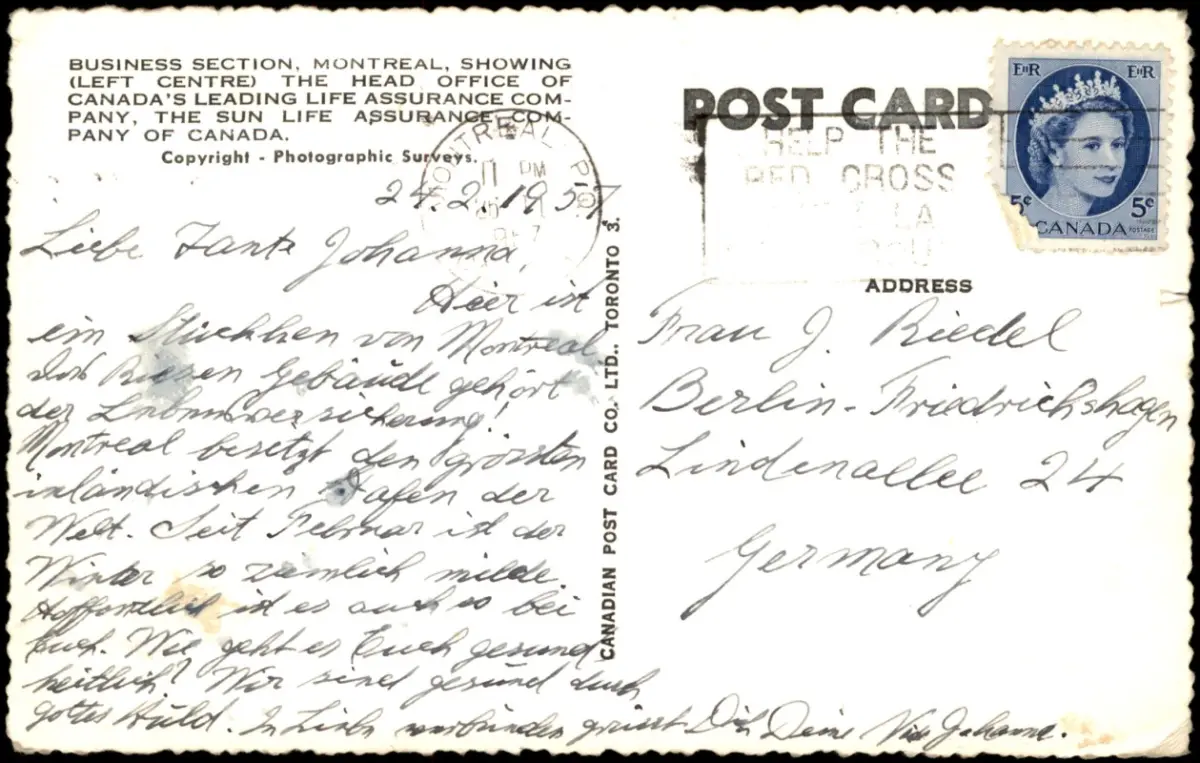 BUSINESS SECTION, MONTREAL, SHOWING
(LEFT CENTRE) THE HEAD OFFICE OF
CANADA'S LEADING LIFE ASSURANCE COM-
PANY, THE SUN LIFE ASSURANCE COM-
PANY OF CANADA.
Copyright - Photographic Surveys.
24.2.1957
Liebe Tante Johanna,
Hier ist
ein Stückchen von Montreal,
das Riesen Gebäude gehört
der Lebensversicherung!
Montreal besetzt den grössten
inländischen Hafen der
Welt. Seit Februar ist der
Winter so ziemlich milde.
Hoffentlich ist es auch so bei
Euch. Wie geht es Euch gesund
heitlich? Wir sind gesund durch
gottes Huld. In Liebe verbunden grüsst Dich Deine Johanne.
CANADIAN POST CARD CO. LTD., TORONTO 3.
POST CARD
MONTREAL P.Q.
11 PM
HELP THE
RED CROSS
E II R E II R
5¢ 5¢
CANADA POSTAGE
ADDRESS
Frau J. Riedel
Berlin-Friedrichshagen
Lindenallee 24
Germany